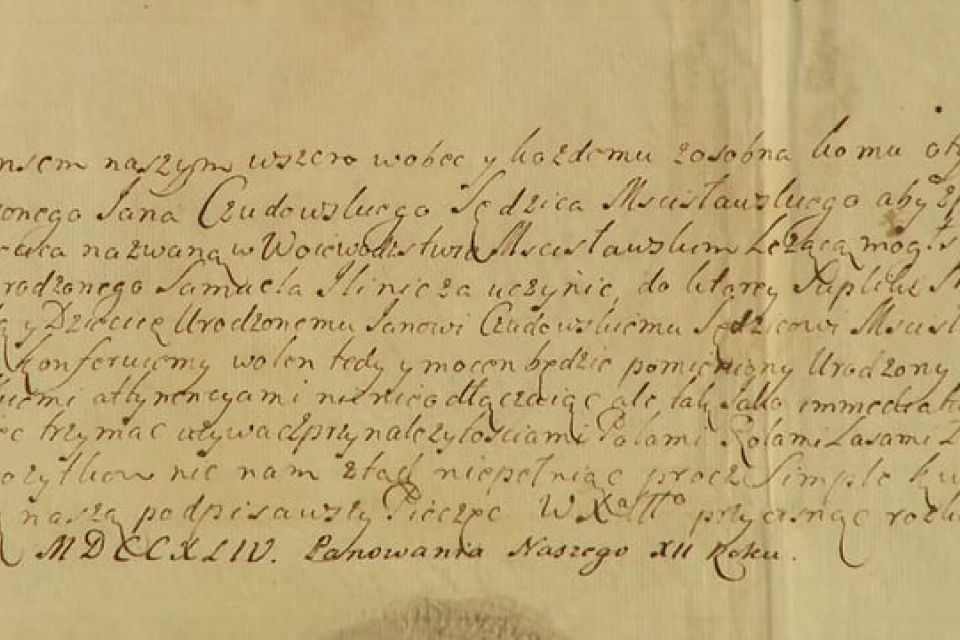 nsem naszym wszem wobec y kożdemu zosobna komu
onego Jana Czudowskiego Sędzica Mscisławskiego aby
nazwaną w Woiewodztwie Mscisławskim Leżącą mogł
rodzonego Samuela Ilinicza uczynic, do ktorey Supliki
y Dziecię Urodzonemu Janowi Czudowskiemu Sędzicowi Mscisł
Konferujemy wolen tedy y mocen będzie pomieniony Urodzony
kiemi attynencyami nic nieodłączaiąc ale, tak Jako immediate
trzymac używac z przynależytościami Polami Rolami Lasami
ożytkow nic nam ztąd niepełniąc procz Simple kw
naszą podpisawszy Pieczęc W X Litt przycisnąc rozka
MDCCXLIV. Panowania Naszego XII Roku.